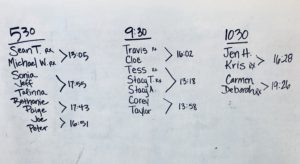 530
Sean T. RX
Michael W. RX >13:05
Sonia
Jeff >17:55
Tatinna
Bethanie
Paige >17:43
Joe
Peter >16:51
9:30
Travis RX
Cloe >16:02
Tess RX
Stacy T. RX >13:18
Stacy A.
Corey
Taylor >13:58
1030
Jen H.
Kris RX >16:28
Carmen
Deborah RX >19:26